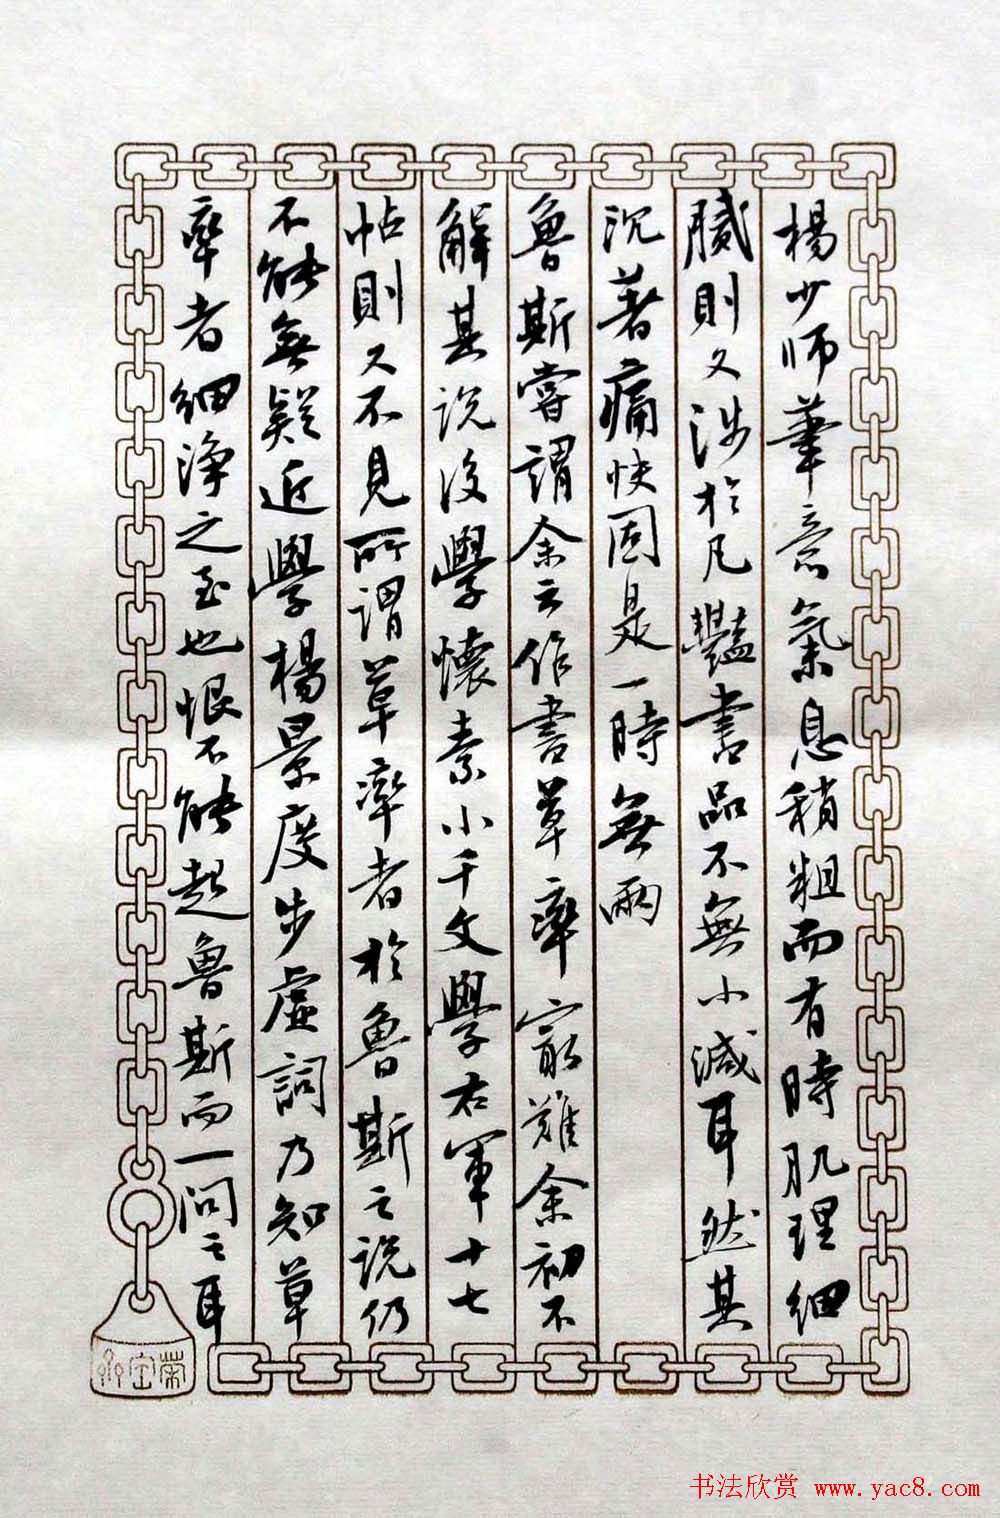 楊少師華意氣息稍粗而有時肌理細
膩則又涉於凡豔書品不無小減耳然其
沉著痛快固是一時無兩
魯斯嘗謂余云作書草率寂難余初不
解其説後學懷素小千文學右軍十七
帖則又不見所謂草率者於魯斯之説仍
不能無疑近學楊景度步虛詞乃知草
率者細淨之至也恨不能起魯斯而一問之耳
榮宝
书法欣赏 www.yac8.com